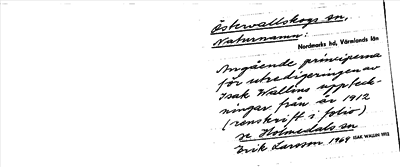 Östervallskogs sn,
Naturnamn:
Nordmarks hd, Värmlands län
Angående principerna
för utredigeringen av
Isak Wallins uppteck-
ningar från år 1912
(renskrift i folio)
se Holmedals sn
Erik Larsson 1969 ISAK WALLIN 1912